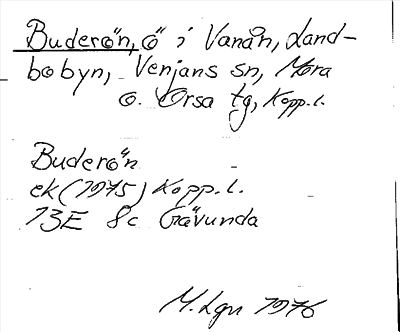 Buderön, ö i Vanån, Land-
bobyn, Venjans sn, Mora
o. Orsa tg, Kopp.l.
Buderön
ek (1975) Kopp.l.
13E 8c Gävunda
M.Lgn 1976